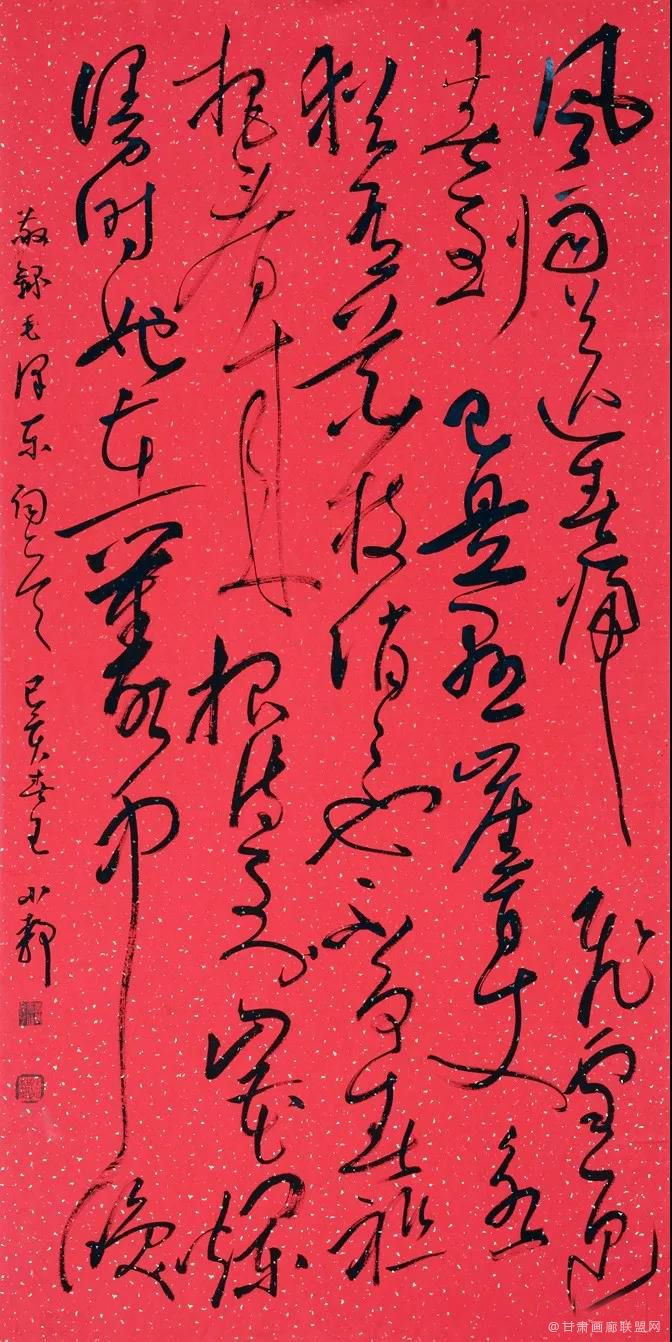 风雨送春归飞雪迎
春到已是悬崖百丈冰
犹有花枝俏俏也不争春祗
把春来报待到山花爛
漫时她在丛中笑
敬録毛泽东词一首 己亥春王小静
@甘肃画廊联盟网